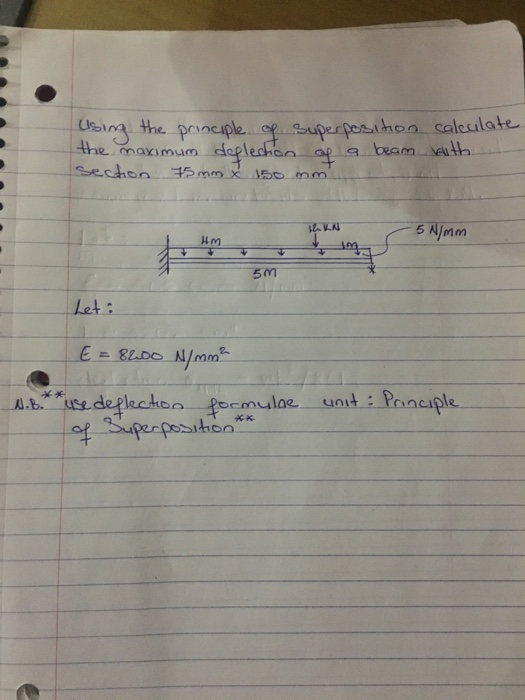 Using the principle of superposition calculate
the maximum deflection of a beam with
section 75mm x 150 mm
KN
5 N/mm
4m
1m
5m
Let:
E = 8200 N/mm²
N.B. **use deflection formulae unit: Principle
of Superposition**